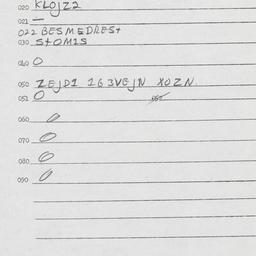 020 KLOJZZ
021 —
022 BESMEDREST
030 STOMIS
040 O
050 ZEJDI 163VEJN XOZN
051 O
060 O
070 O
080 O
090 O